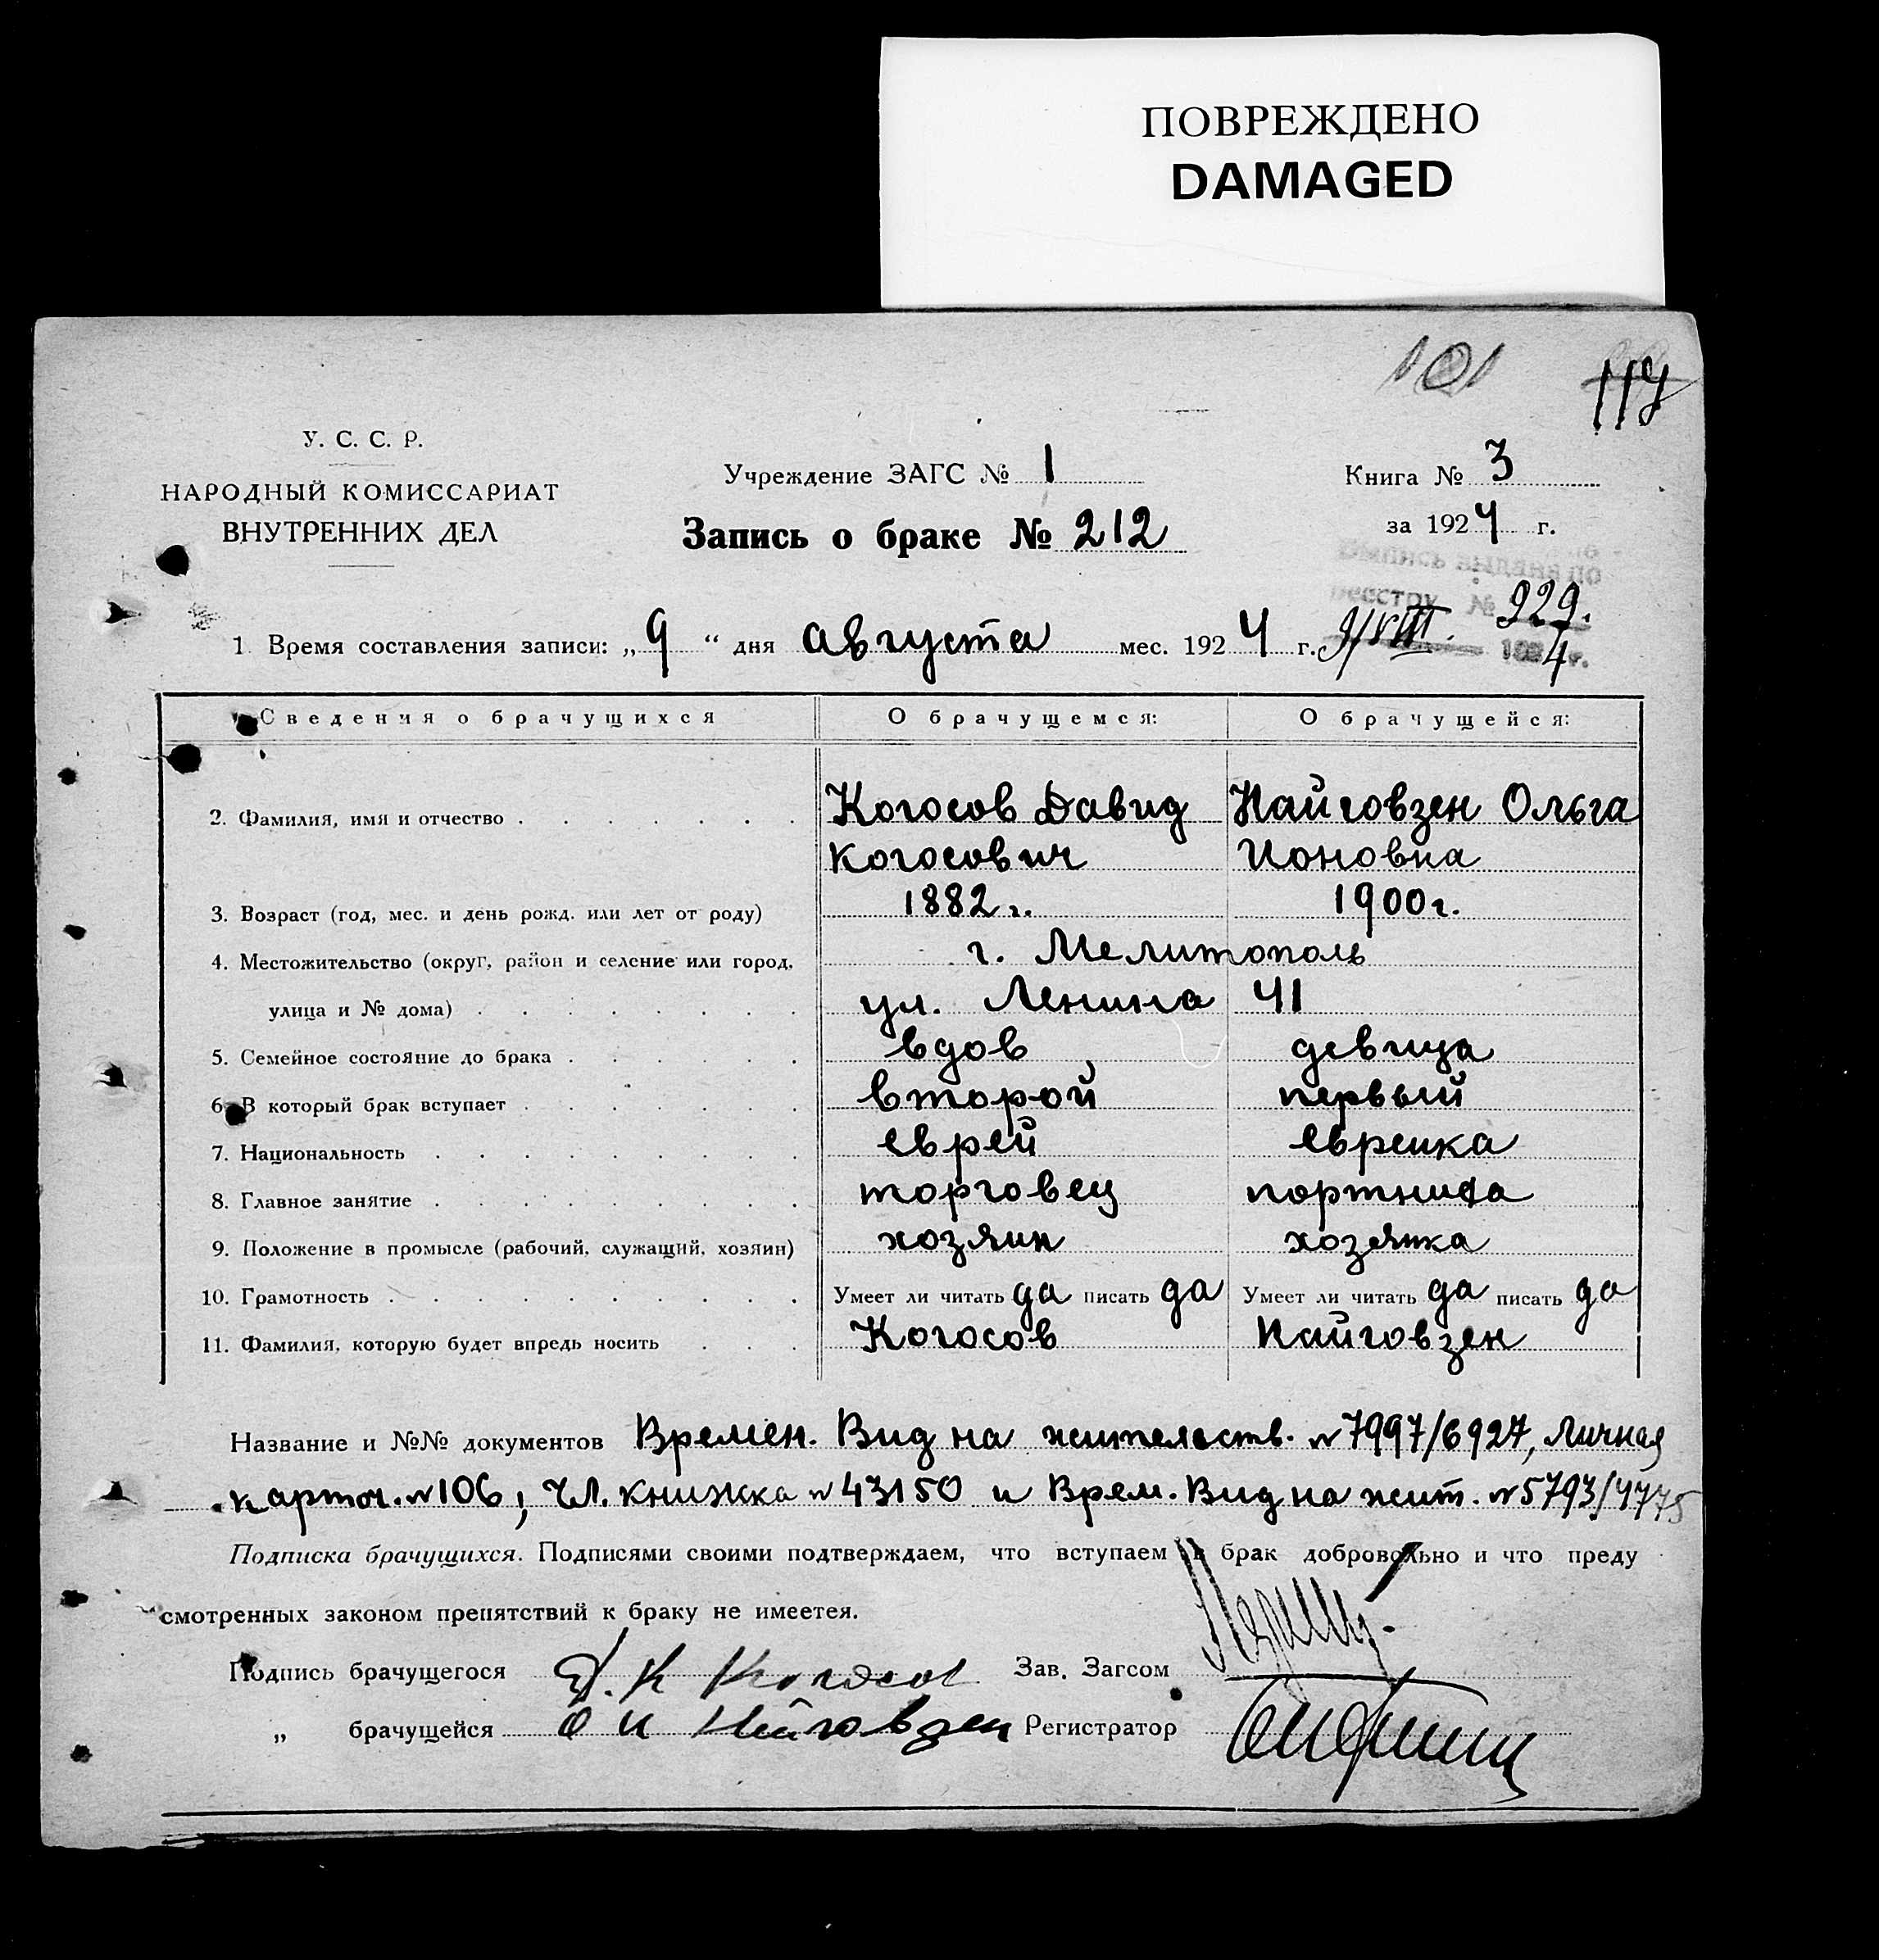 ПОВРЕЖДЕНО
DAMAGED
101
117
У. С. С. Р.
НАРОДНЫЙ КОМИССАРИАТ
ВНУТРЕННИХ ДЕЛ
Учреждение ЗАГС № 1
Запись о браке № 212
Книга № 3
за 1924 г.
Выпись выдана по
реестру № 929.
9/VIII. 1924 г.
1 Время составления записи: „9“ дня августа мес. 1924 г.
Сведения о брачущихся О брачущемся: О брачущейся:
2. Фамилия, имя и отчество Когосов Давид Найговзен Ольга
Когосович Ионовна
3. Возраст (год, мес. и день рожд. или лет от роду) 1882 г. 1900 г.
4. Местожительство (округ, район и селение или город, г. Мелитополь
улица и № дома) ул. Ленина 41
5. Семейное состояние до брака вдов девица
6. В который брак вступает второй первый
7. Национальность еврей евреика
8. Главное занятие торговец портниха
9. Положение в промысле (рабочий, служащий, хозяин) хозяин хозяика
10. Грамотность Умеет ли читать да писать да Умеет ли читать да писать да
11. Фамилия, которую будет впредь носить Когосов Найговзен
Название и №№ документов Времен. Вид на жительств. № 7997/6927, Личная
карточ. № 106, Чл. книжка № 43150 и Врем. Вид на жит. № 5793/4775
Подписка брачущихся. Подписями своими подтверждаем, что вступаем в брак добровольно и что преду
смотренных законом препятствий к браку не имеетея.
Подпись брачущегося Д. К Когосов Зав. Загсом
„ брачущейся О И Найговзен Регистратор